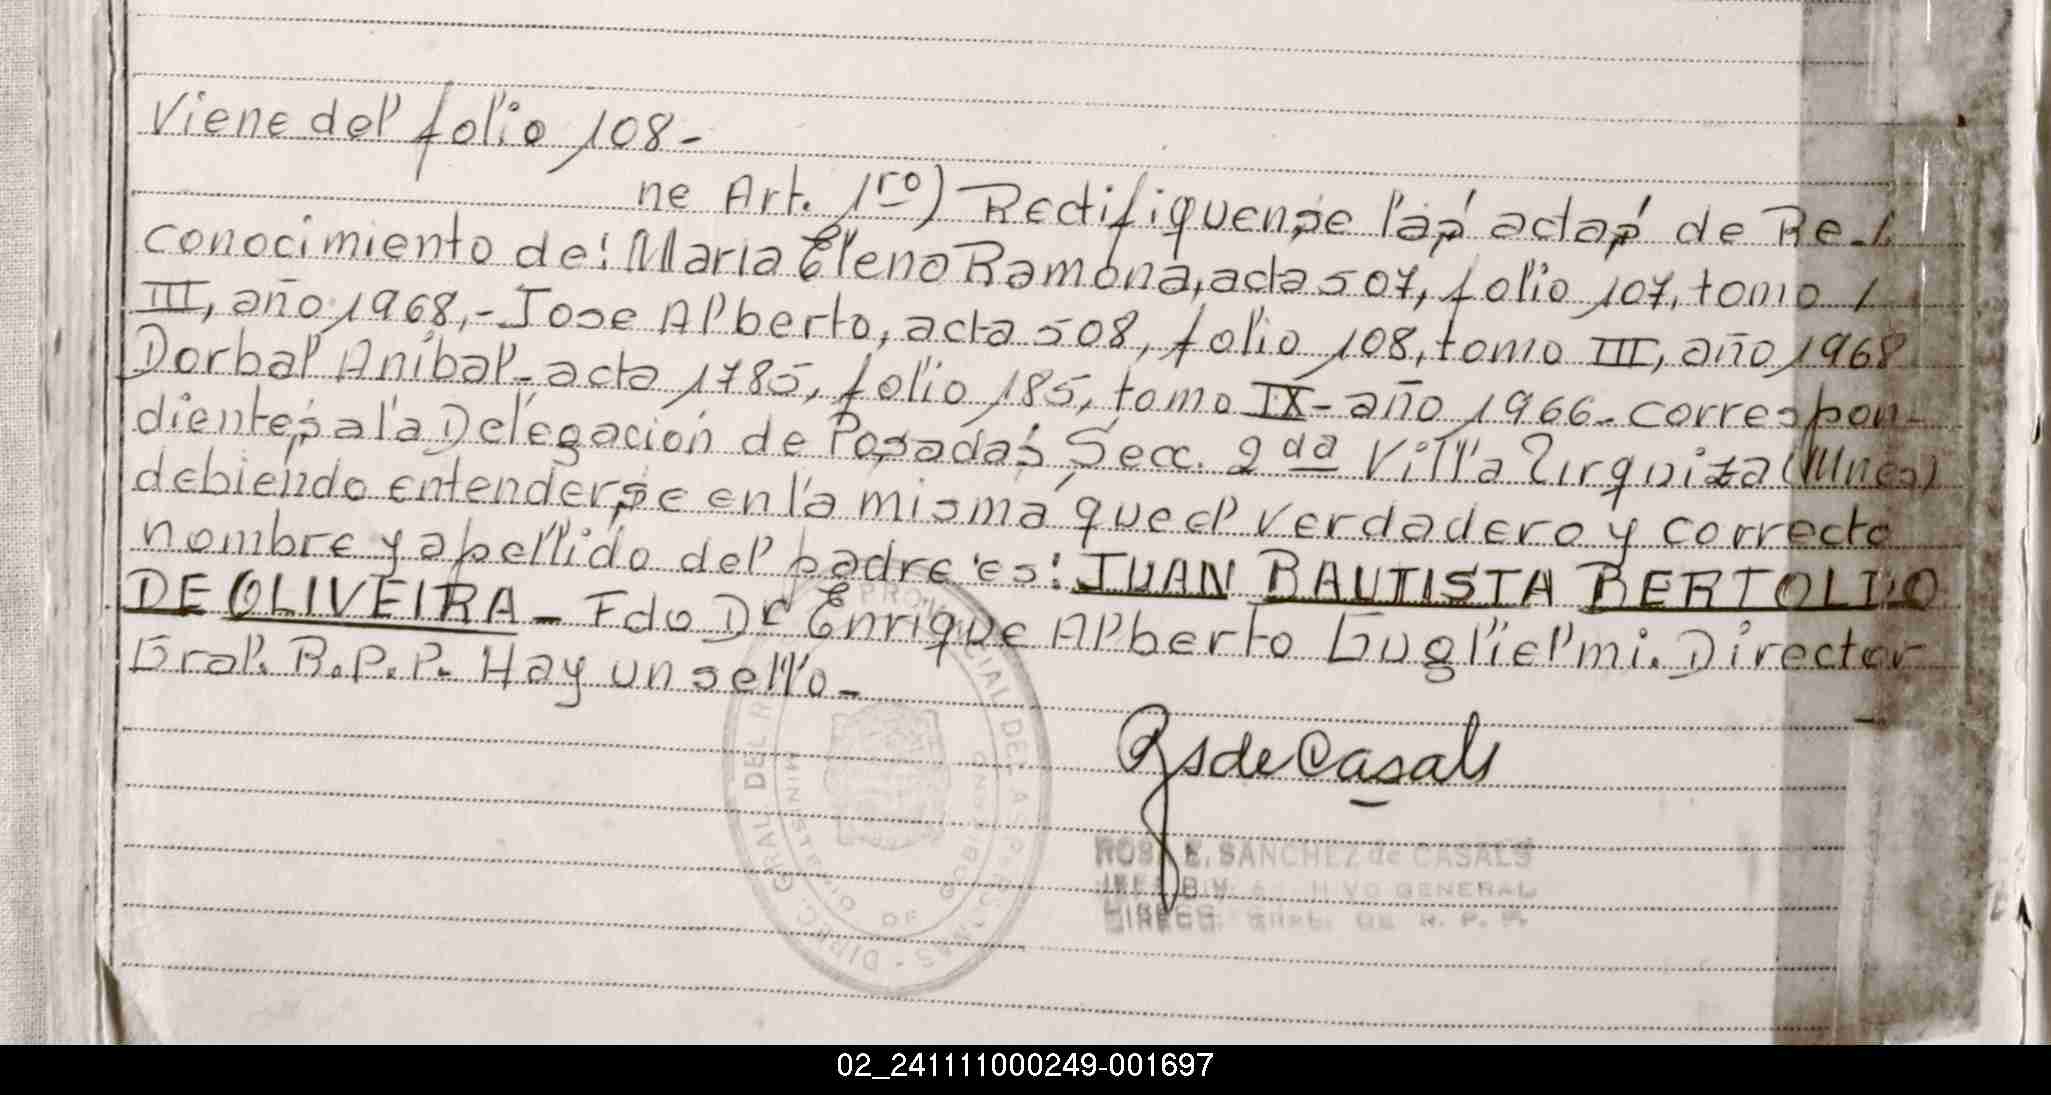 Viene del folio 108-
ne Art. 1ro) Rectifiquense las actas de Re-/
conocimiento de: Maria Elena Ramona, acta 507, folio 107, tomo /
III, año 1968,- Jose Alberto, acta 508, folio 108, tomo III, año 1968
Dorbal Anibal- acta 1785, folio 185, tomo IX- año 1966- correspon-
dientes a la Delegación de Posadas Secc. 2da Villa Urquiza (Mnes)
debiendo entenderse en la misma que el verdadero y correcto
nombre y apellido del padre es: JUAN BAUTISTA BERTOLDO
DE OLIVEIRA- Fdo Dr Enrique Alberto Guglielmi. Director
Gral. R.P.P. Hay un sello-
RSdeCasals
ROSA E. SANCHEZ de CASALS
GENERAL
DE R. P. P.
DIREC. GRAL. DEL R. PROVINCIAL DE LAS PERSONAS
MINISTERIO DE GOBIERNO
02_241111000249-001697